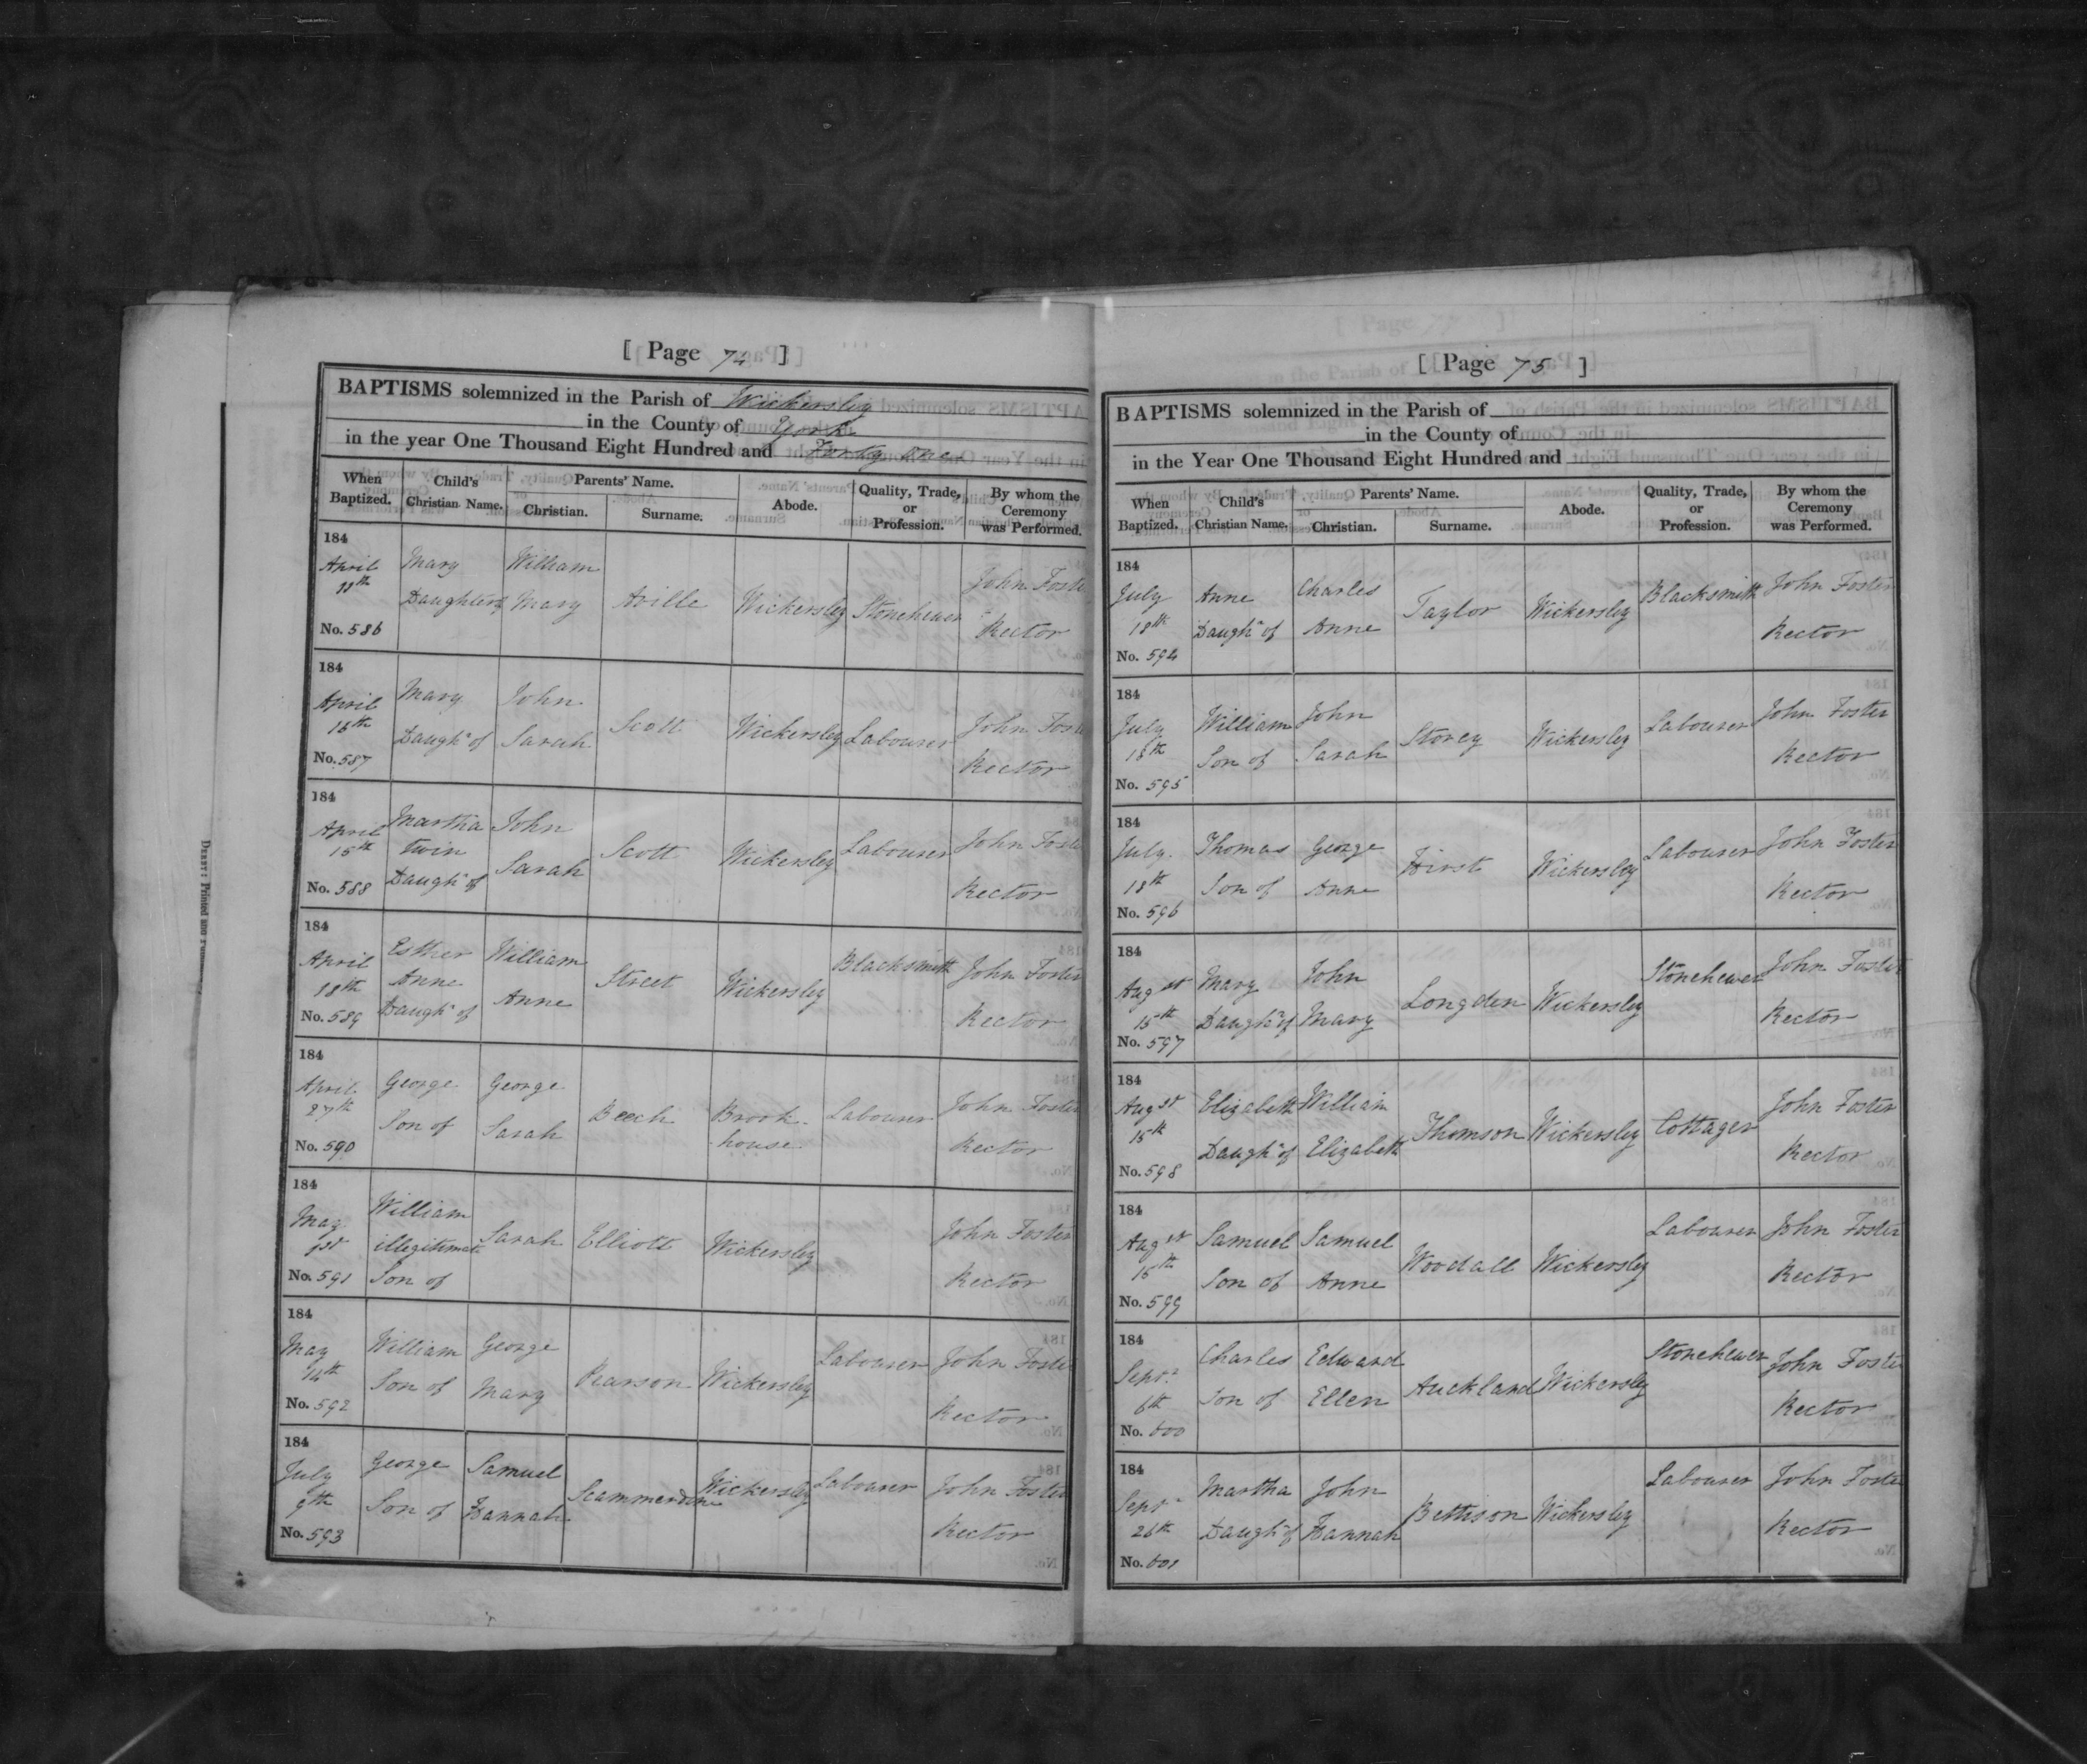 [ Page 74 ]
BAPTISMS solemnized in the Parish of Wickersley
in the County of York
in the year One Thousand Eight Hundred and Forty One
When Baptized. Child's Christian Name. Parents' Name. Christian. Surname. Abode. Quality, Trade, or Profession. By whom the Ceremony was Performed.
184
April 11th Mary Daughter of William Mary Aville Wickersley Stonehewer John Foster Rector
No. 586
184
April 15th Mary Daughr of John Sarah Scott Wickersley Labourer John Foster Rector
No. 587
184
April 15th Martha twin Daughr of John Sarah Scott Wickersley Labourer John Foster Rector
No. 588
184
April 18th Esther Anne Daughr of William Anne Street Wickersley Blacksmith John Foster Rector
No. 589
184
April 27th George Son of George Sarah Beech Brook-house Labourer John Foster Rector
No. 590
184
May 1st William illegitimate Son of Sarah Elliott Wickersley John Foster Rector
No. 591
184
May 14th William Son of George Mary Pearson Wickersley Labourer John Foster Rector
No. 592
184
July 9th George Son of Samuel Hannah Scammerdine Wickersley Labourer John Foster Rector
No. 593
[ Page 75 ]
BAPTISMS solemnized in the Parish of
in the County of
in the Year One Thousand Eight Hundred and
When Baptized. Child's Christian Name. Parents' Name. Christian. Surname. Abode. Quality, Trade, or Profession. By whom the Ceremony was Performed.
184
July 18th Anne Daughr of Charles Anne Taylor Wickersley Blacksmith John Foster Rector
No. 594
184
July 18th William Son of John Sarah Storey Wickersley Labourer John Foster Rector
No. 595
184
July 18th Thomas Son of George Anne Hirst Wickersley Labourer John Foster Rector
No. 596
184
Augst 15th Mary Daughr of John Mary Longden Wickersley Stonehewer John Foster Rector
No. 597
184
Augst 15th Elizabeth Daughr of William Elizabeth Thomson Wickersley Cottager John Foster Rector
No. 598
184
Augst 15th Samuel Son of Samuel Anne Woodall Wickersley Labourer John Foster Rector
No. 599
184
Septr 6th Charles Son of Edward Ellen Auckland Wickersley Stonehewer John Foster Rector
No. 600
184
Septr 26th Martha Daughr of John Hannah Bettison Wickersley Labourer John Foster Rector
No. 601